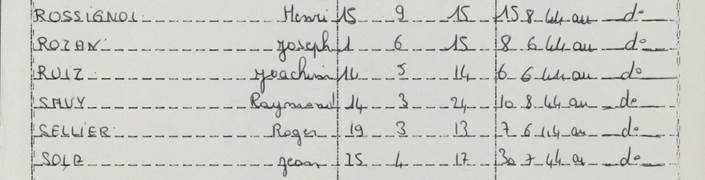 ROSSIGNOL Henri 15 9 15 15 8 44 au do
ROZAN Joseph 1 6 15 8 6 44 au do
RUIZ Joachim 14 5 14 6 6 44 au do
SAVY Raymond 14 3 24 10 8 44 au do
SELLIER Roger 19 3 13 7 6 44 au do
SOLA Jean 25 4 17 30 7 44 au do